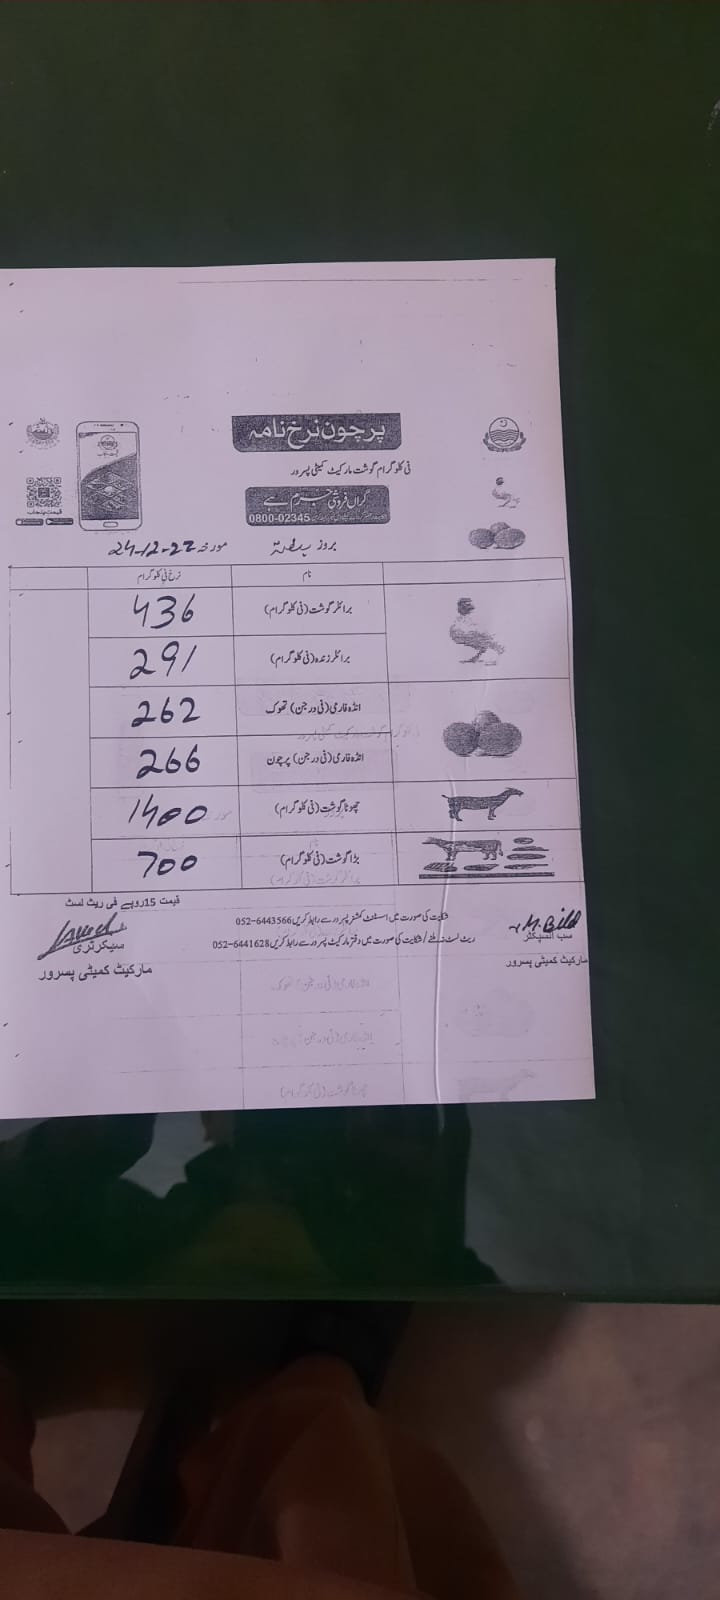 پرچون نرخ نامہ
فی کلوگرام گوشت مارکیٹ کمیٹی پسرور
گراں فروشی جرم ہے
0800-02345
قیمت پنجاب
بروز ہفتہ مورخہ 24-12-22
نام نرخ فی کلوگرام
برائلر گوشت (فی کلوگرام) 436
برائلر زندہ (فی کلوگرام) 291
انڈہ فارمی (فی درجن) تھوک 262
انڈہ فارمی (فی درجن) پرچون 266
چھوٹا گوشت (فی کلوگرام) 1400
بڑا گوشت (فی کلوگرام) 700
قیمت 15 روپے فی ریٹ لسٹ
شکایت کی صورت میں اسسٹنٹ کمشنر پسرور سے رابطہ کریں 052-6443566
ریٹ لسٹ نہ ملنے / شکایت کی صورت میں دفتر مارکیٹ پسرور سے رابطہ کریں 052-6441628
M. Bilal
سب انسپکٹر
مارکیٹ کمیٹی پسرور
سیکرٹری
مارکیٹ کمیٹی پسرور